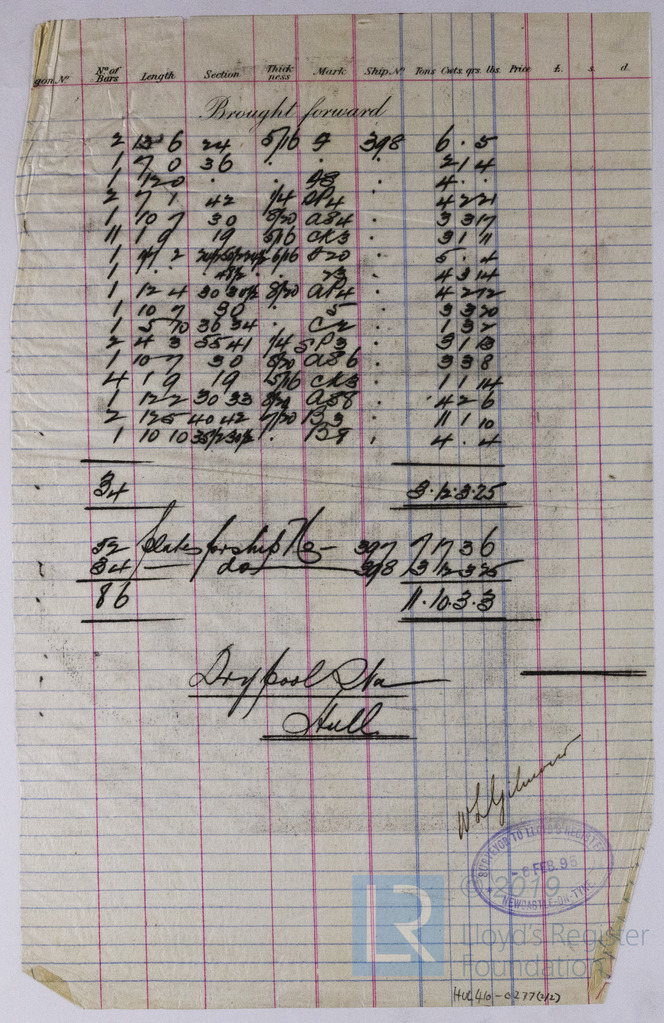 gon. Nº Nº of Bars Length Section Thickness Mark Ship Nº Tons Cwts. qrs. lbs. Price £. s. d.
Brought forward
2 13 6 24 5/16 9 398 6 . 5
1 7 0 36 . . . 2 1 4
1 12 0 . . . 4 . .
2 7 1 42 1/4 4 . 4 2 21
1 10 7 30 8/20 AS4 . 3 3 17
11 1 9 19 5/16 CK3 . 3 1 11
1 2 6/16 . 5 . 4
1 . . . 23 . 4 3 14
1 12 4 30 30½ 8/20 AP4 . 4 2 12
1 10 7 30 . 5 . 3 3 20
1 5 10 30 34 . C2 . 1 3 2
2 4 3 55 41 1/4 SP3 . 3 1 13
1 10 7 30 8/20 AS6 . 3 3 8
4 1 9 19 5/16 CK3 . 1 1 14
1 12 2 30 33 8/20 AS8 . 4 2 6
2 12 5 40 42 7/20 B3 . 11 1 10
1 10 10 35½ 30½ . B8 . 4 . 4
34 3.12.3.25
52 plates for ship No 397 7 17 3 6
34 — do — 398 3 12 3 25
86 11.10.3.3
Drypool Sta
Hull
W L Gilmour
SURVEYOR TO LLOYD'S REGISTER
- 6 FEB. 96
NEWCASTLE-ON-TYNE
© 2019
LR
Lloyd's Register
Foundation
HUL410-0277(2/2)